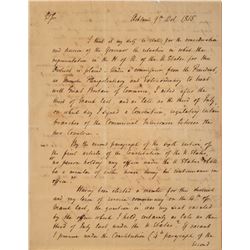 Sir,
Ashland 9th Oct. 1815
I think it my duty to state for the consideration
and decision of the Governor the situation in which the
representation in the H. of R. of the U. States for this
District is placed. Under a commission from the President,
as Minister Plenipotentiary and Extraordinary to treat
with Great Britain of Commerce, I acted after the
third of March last, and as late as the third of July,
on which day I signed a Convention, regulating certain
branches of the Commercial Intercourse between the
two Countries.
By the second paragraph of the sixth section of
the first article of the Constitution of the U. States,
no person holding any office under the U. States shall
be a member of either house during his continuance in
office.
Having been elected a member for this District
and my term of service commencing on the 4th of
March last, the question is was my seat vacated
by the office which I held, certainly as late as the
third of July last under the U. States? If vacated
I presume under the Constitution (4th paragraph of the
second